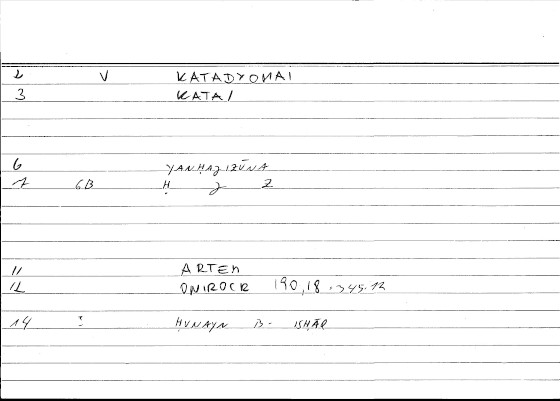 2 V KATADYOMAI
3 KATA/
6 YANḤAǦIZŪNA
7 GB Ḥ Ǧ Z
11 ARTEM
12 ONIROCR 190,18 - 345.12
14 : ḤUNAYN B- ISHĀQ